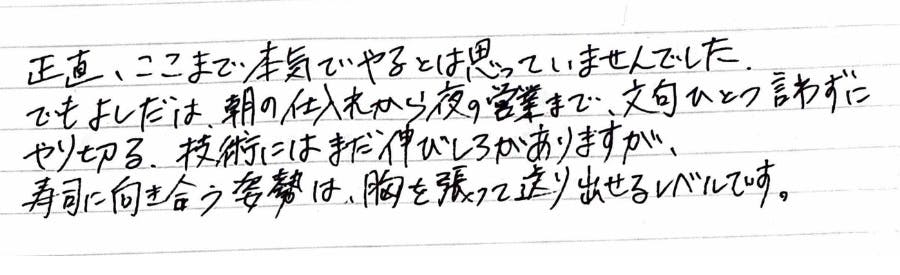 正直、ここまで本気でやるとは思っていませんでした.
でもよしだは、朝の仕入れから夜の営業まで、文句ひとつ言わずに
やり切る. 技術にはまだ伸びしろがありますが、
寿司に向き合う姿勢は、胸を張って送り出せるレベルです。